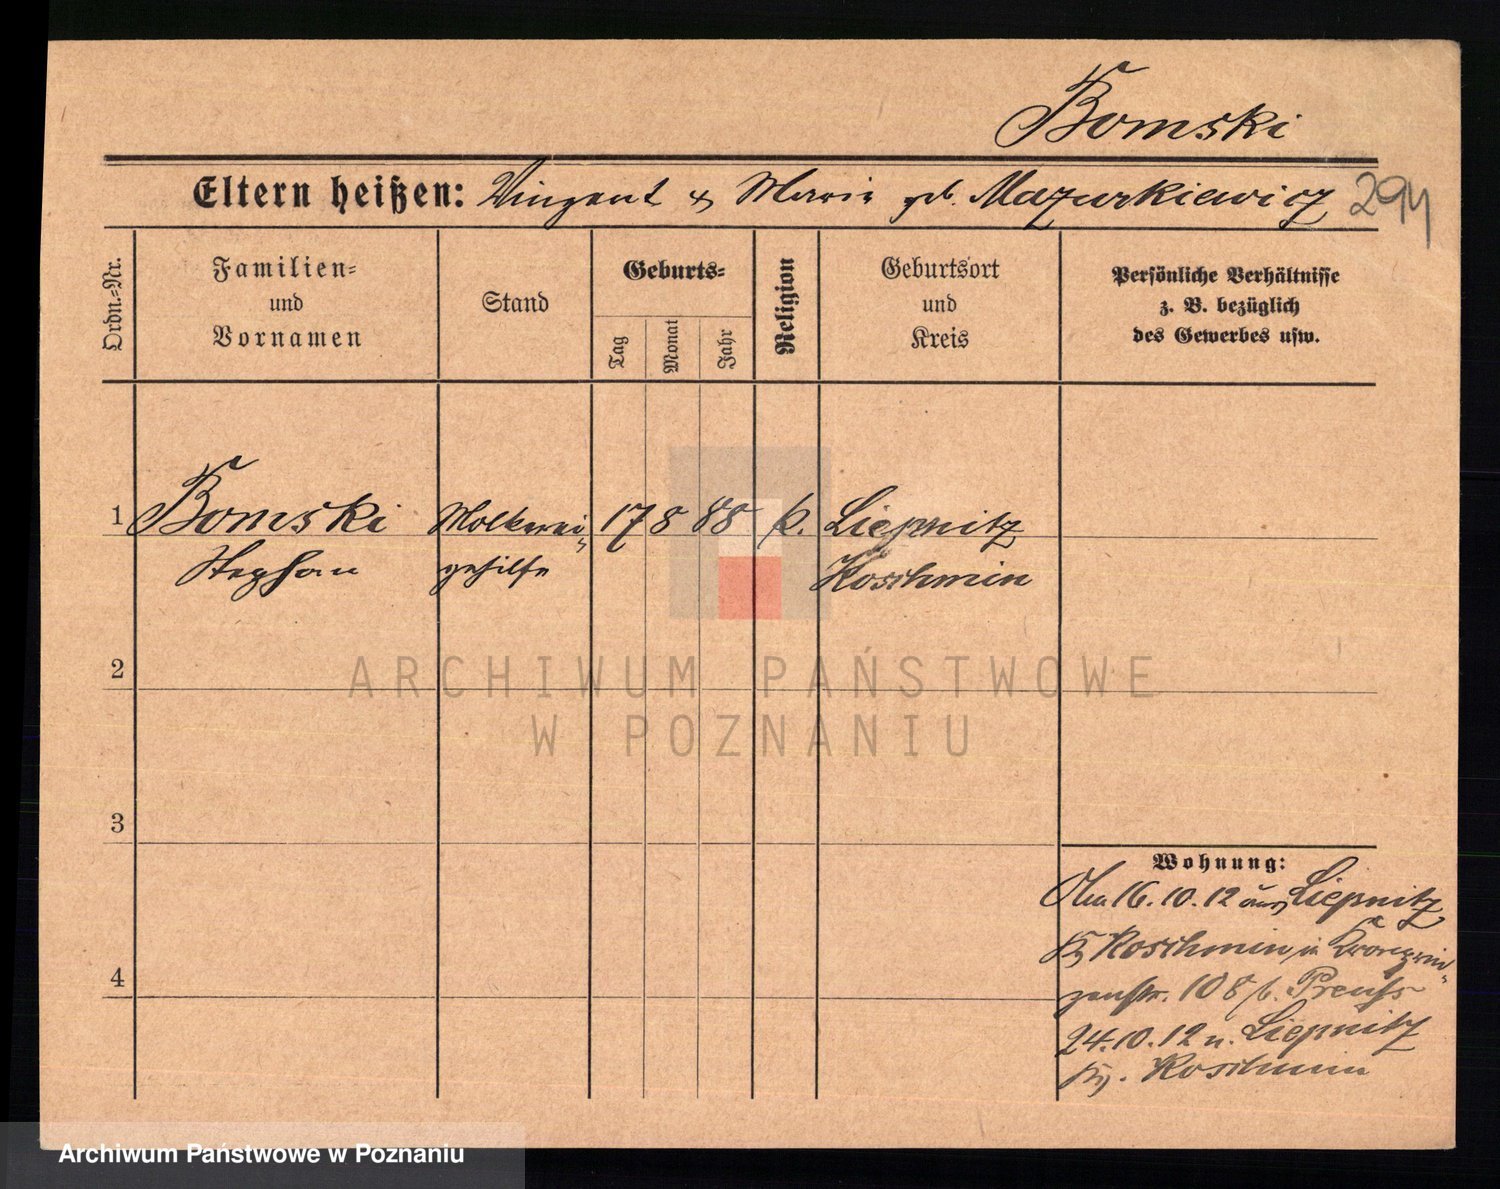 Bomski
Eltern heißen: Vinzent & Marie geb. Mazurkiewicz 294
Ordn.=Nr.
Familien=
und
Vornamen
Stand
Geburts=
Tag
Monat
Jahr
Religion
Geburtsort
und
Kreis
Persönliche Verhältnisse
z. B. bezüglich
des Gewerbes usw.
1 Bomski Molkerei= 17 8 88 k. Liepnitz
Stephan gehilfe Koschmin
2
3
4
Wohnung:
Am 16.10.12 aus Liepnitz
Koschmin, in Kronprin=
zenstr. 108 b. Preuß
24.10.12 n. Liepnitz
Koschmin
ARCHIWUM PAŃSTWOWE
W POZNANIU
Archiwum Państwowe w Poznaniu